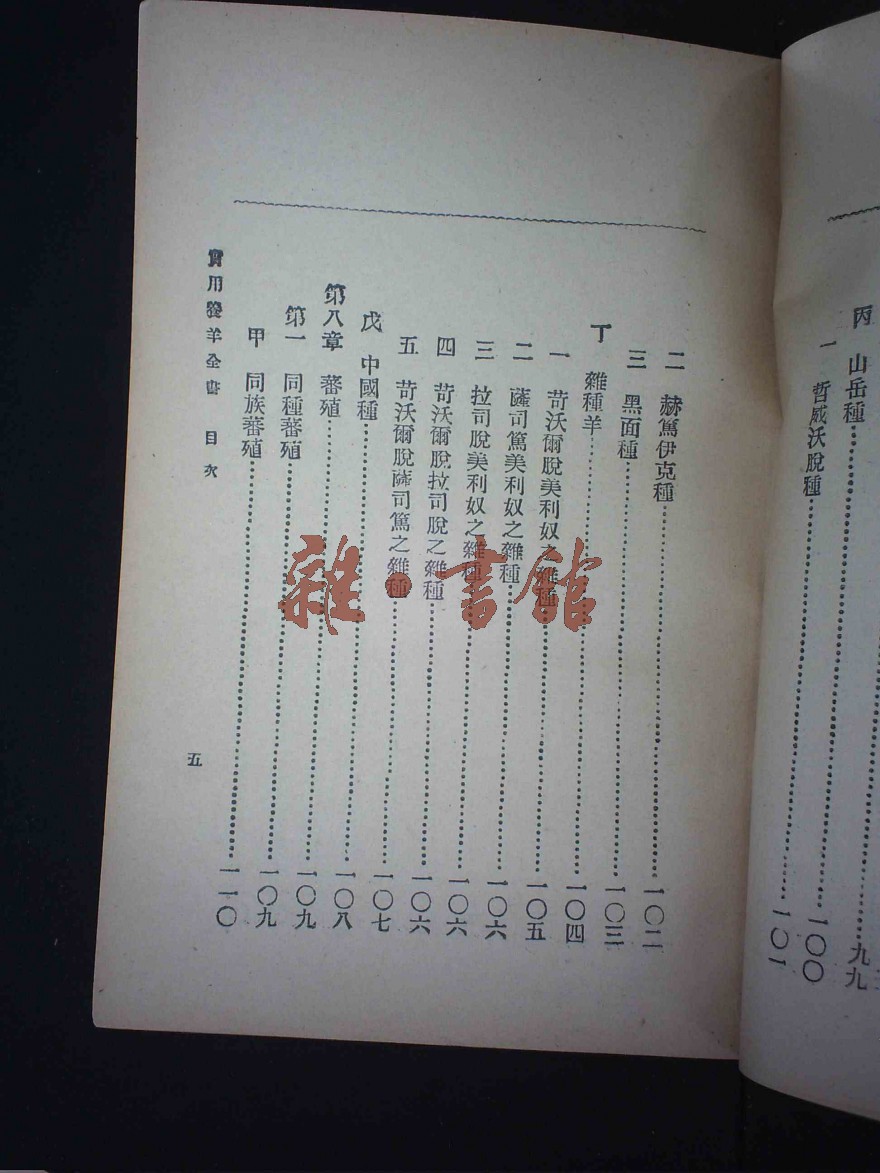 九九
丙 山岳種……一〇〇
一 哲威沃脫種……一〇一
二 赫篤伊克種……一〇二
三 黑面種……一〇三
丁 雜種羊……一〇四
一 苛沃爾脫美利奴之雜種……一〇五
二 薩司篤美利奴之雜種……一〇六
三 拉司脫美利奴之雜種……一〇六
四 苛沃爾脫拉司脫之雜種……一〇六
五 苛沃爾脫薩司篤之雜種……一〇七
戊 中國種……一〇八
第八章 蕃殖……一〇九
第一 同種蕃殖……一〇九
甲 同族蕃殖……一一〇
實用養羊全書 目次 五
雜·書館